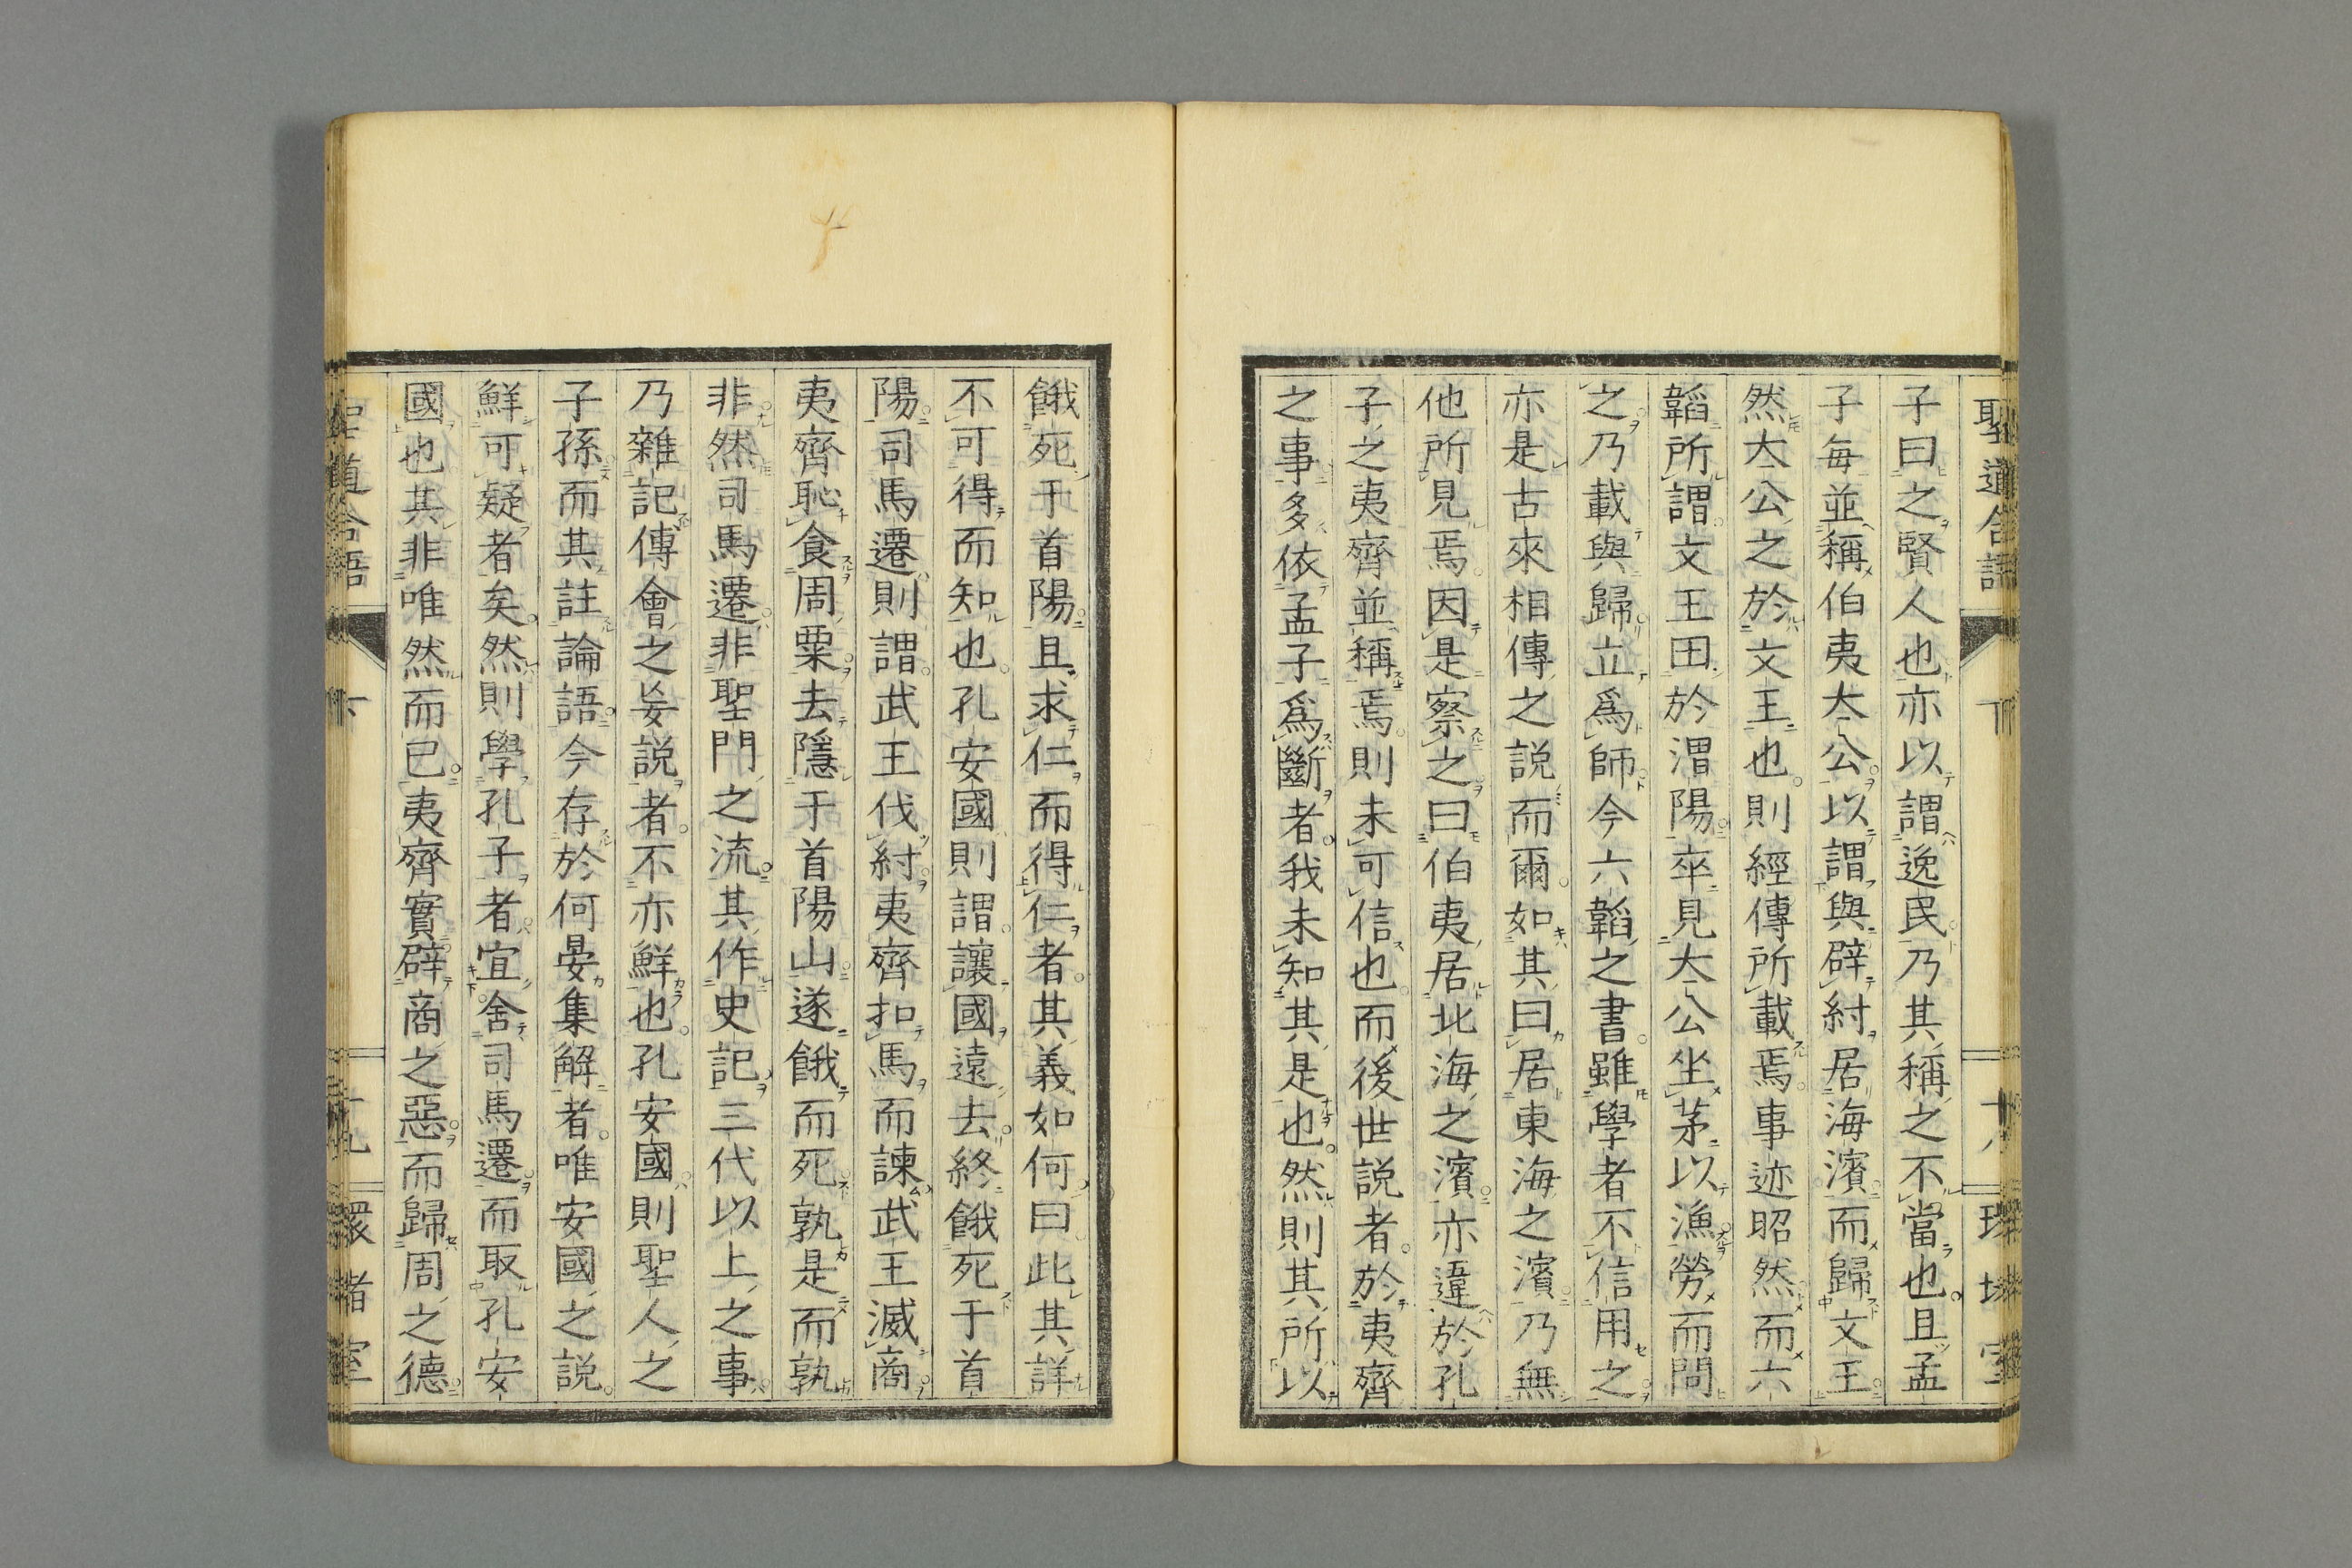 子曰之賢人也亦以謂逸民乃其稱之不當也且孟
子每並稱伯夷大公以謂與辟紂居海濱而歸文王
然大公之於文王也則經傳所載焉事迹昭然而六
韜所謂文王田於渭陽卒見大公坐茅以漁勞而問
之乃載與歸立爲師今六韜之書雖學者不信用之
亦是古來相傳之説而爾如其曰居東海之濱乃無
他所見焉因是察之曰伯夷居北海之濱亦違於孔
子之夷齊並稱焉則未可信也而後世説者於夷齊
之事多依孟子爲斷者我未知其是也然則其所以
餓死于首陽且求仁而得仁者其義如何曰此其詳
不可得而知也孔安國則謂讓國遠去終餓死于首
陽司馬遷則謂武王伐紂夷齊扣馬而諫武王滅商
夷齊恥食周粟去隱于首陽山遂餓而死孰是而孰
非然司馬遷非聖門之流其作史記三代以上之事
乃雜記傳會之妄説者不亦鮮也孔安國則聖人之
子孫而其註論語今存於何晏集解者唯安國之説
鮮可疑者矣然則學孔子者宜舍司馬遷而取孔安
國也其非唯然而已夷齊實辟商之惡而歸周之德